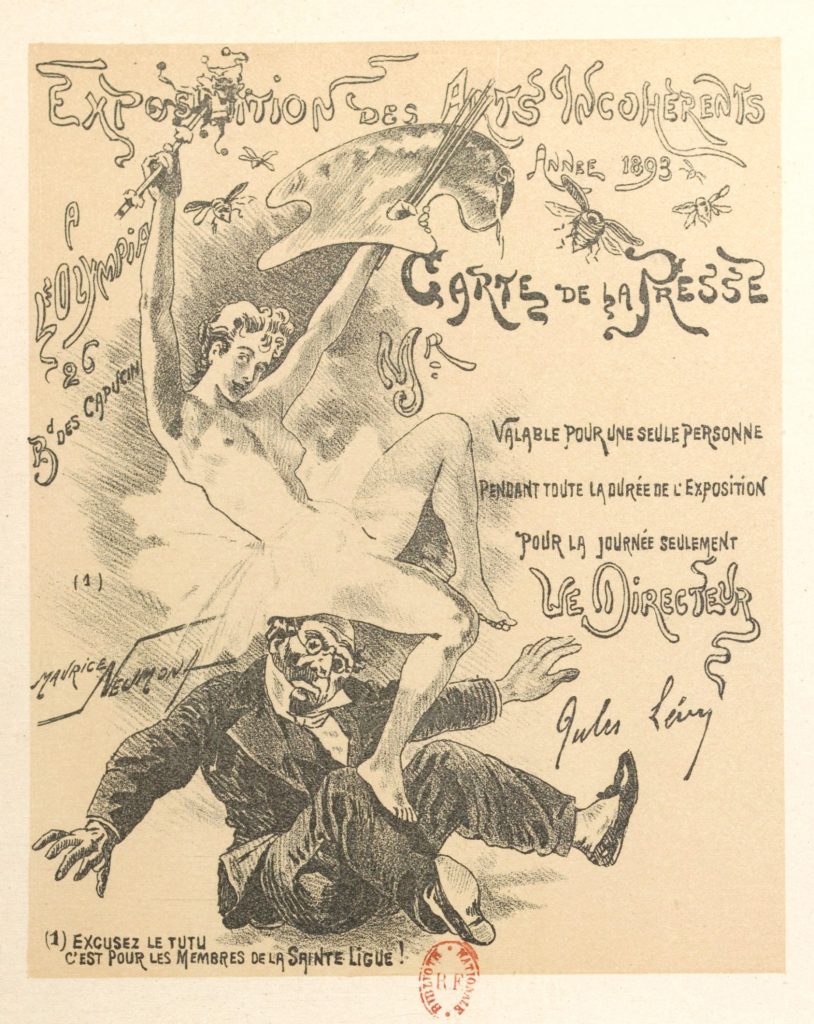 EXPOSITION DES ARTS INCOHÉRENTS
ANNÉE 1893
A
L'OLYMPIA
26
Bd DES CAPUCIN
CARTE DE LA PRESSE
MR
VALABLE POUR UNE SEULE PERSONNE
PENDANT TOUTE LA DURÉE DE L'EXPOSITION
POUR LA JOURNÉE SEULEMENT
LE DIRECTEUR
Jules Lévy
(1)
MAURICE NEUMONT
(1) EXCUSEZ LE TUTU
C'EST POUR LES MEMBRES DE LA SAINTE LIGUE !
BIBLIOTH. NATIONALE
RF